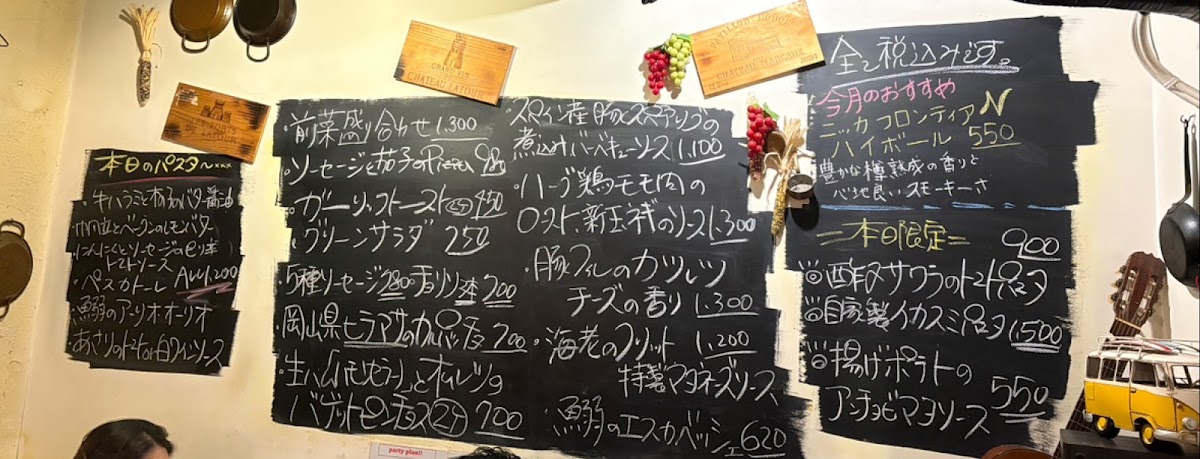 本日のパスタ
牛ハラミと茄子のバター醤油
帆立とベーコンのレモンバター
にんにくとソーセージのピリ辛
トマトソース
ペスカトーレ All1,200
鰯のアーリオオーリオ
あさりのトマトor白ワインソース
・前菜盛り合わせ 1,300
・ソーセージと茄子の
・ガーリックトースト 350
・グリーンサラダ 250
・5種ソーセージ
・岡山県ヒラマサのカルパッチョ 700
・生ハム モッツァレラ とオムレツの
バゲットピンチョス 700
・スペイン産豚スペアリブの
煮込み バーベキューソース 1,100
・ハーブ鶏モモ肉の
ロースト、新玉ネギのソース 1,300
・豚フィレのカツレツ
チーズの香り 1,300
・海老のフリット 1,200
特製マヨネーズソース
・鰯のエスカベッシュ 620
全て税込みです。
今月のおすすめ
ニッカ フロンティア N
ハイボール 550
豊かな樽熟成の香りと
心地良いスモーキーさ
=本日限定=
900
サワラのトマトパスタ
自家製イカスミパスタ 1,500
揚げポテトの
アンチョビマヨソース 550
GRAND VIN
CHATEAU LATOUR
DE LATOUR
party plan!!